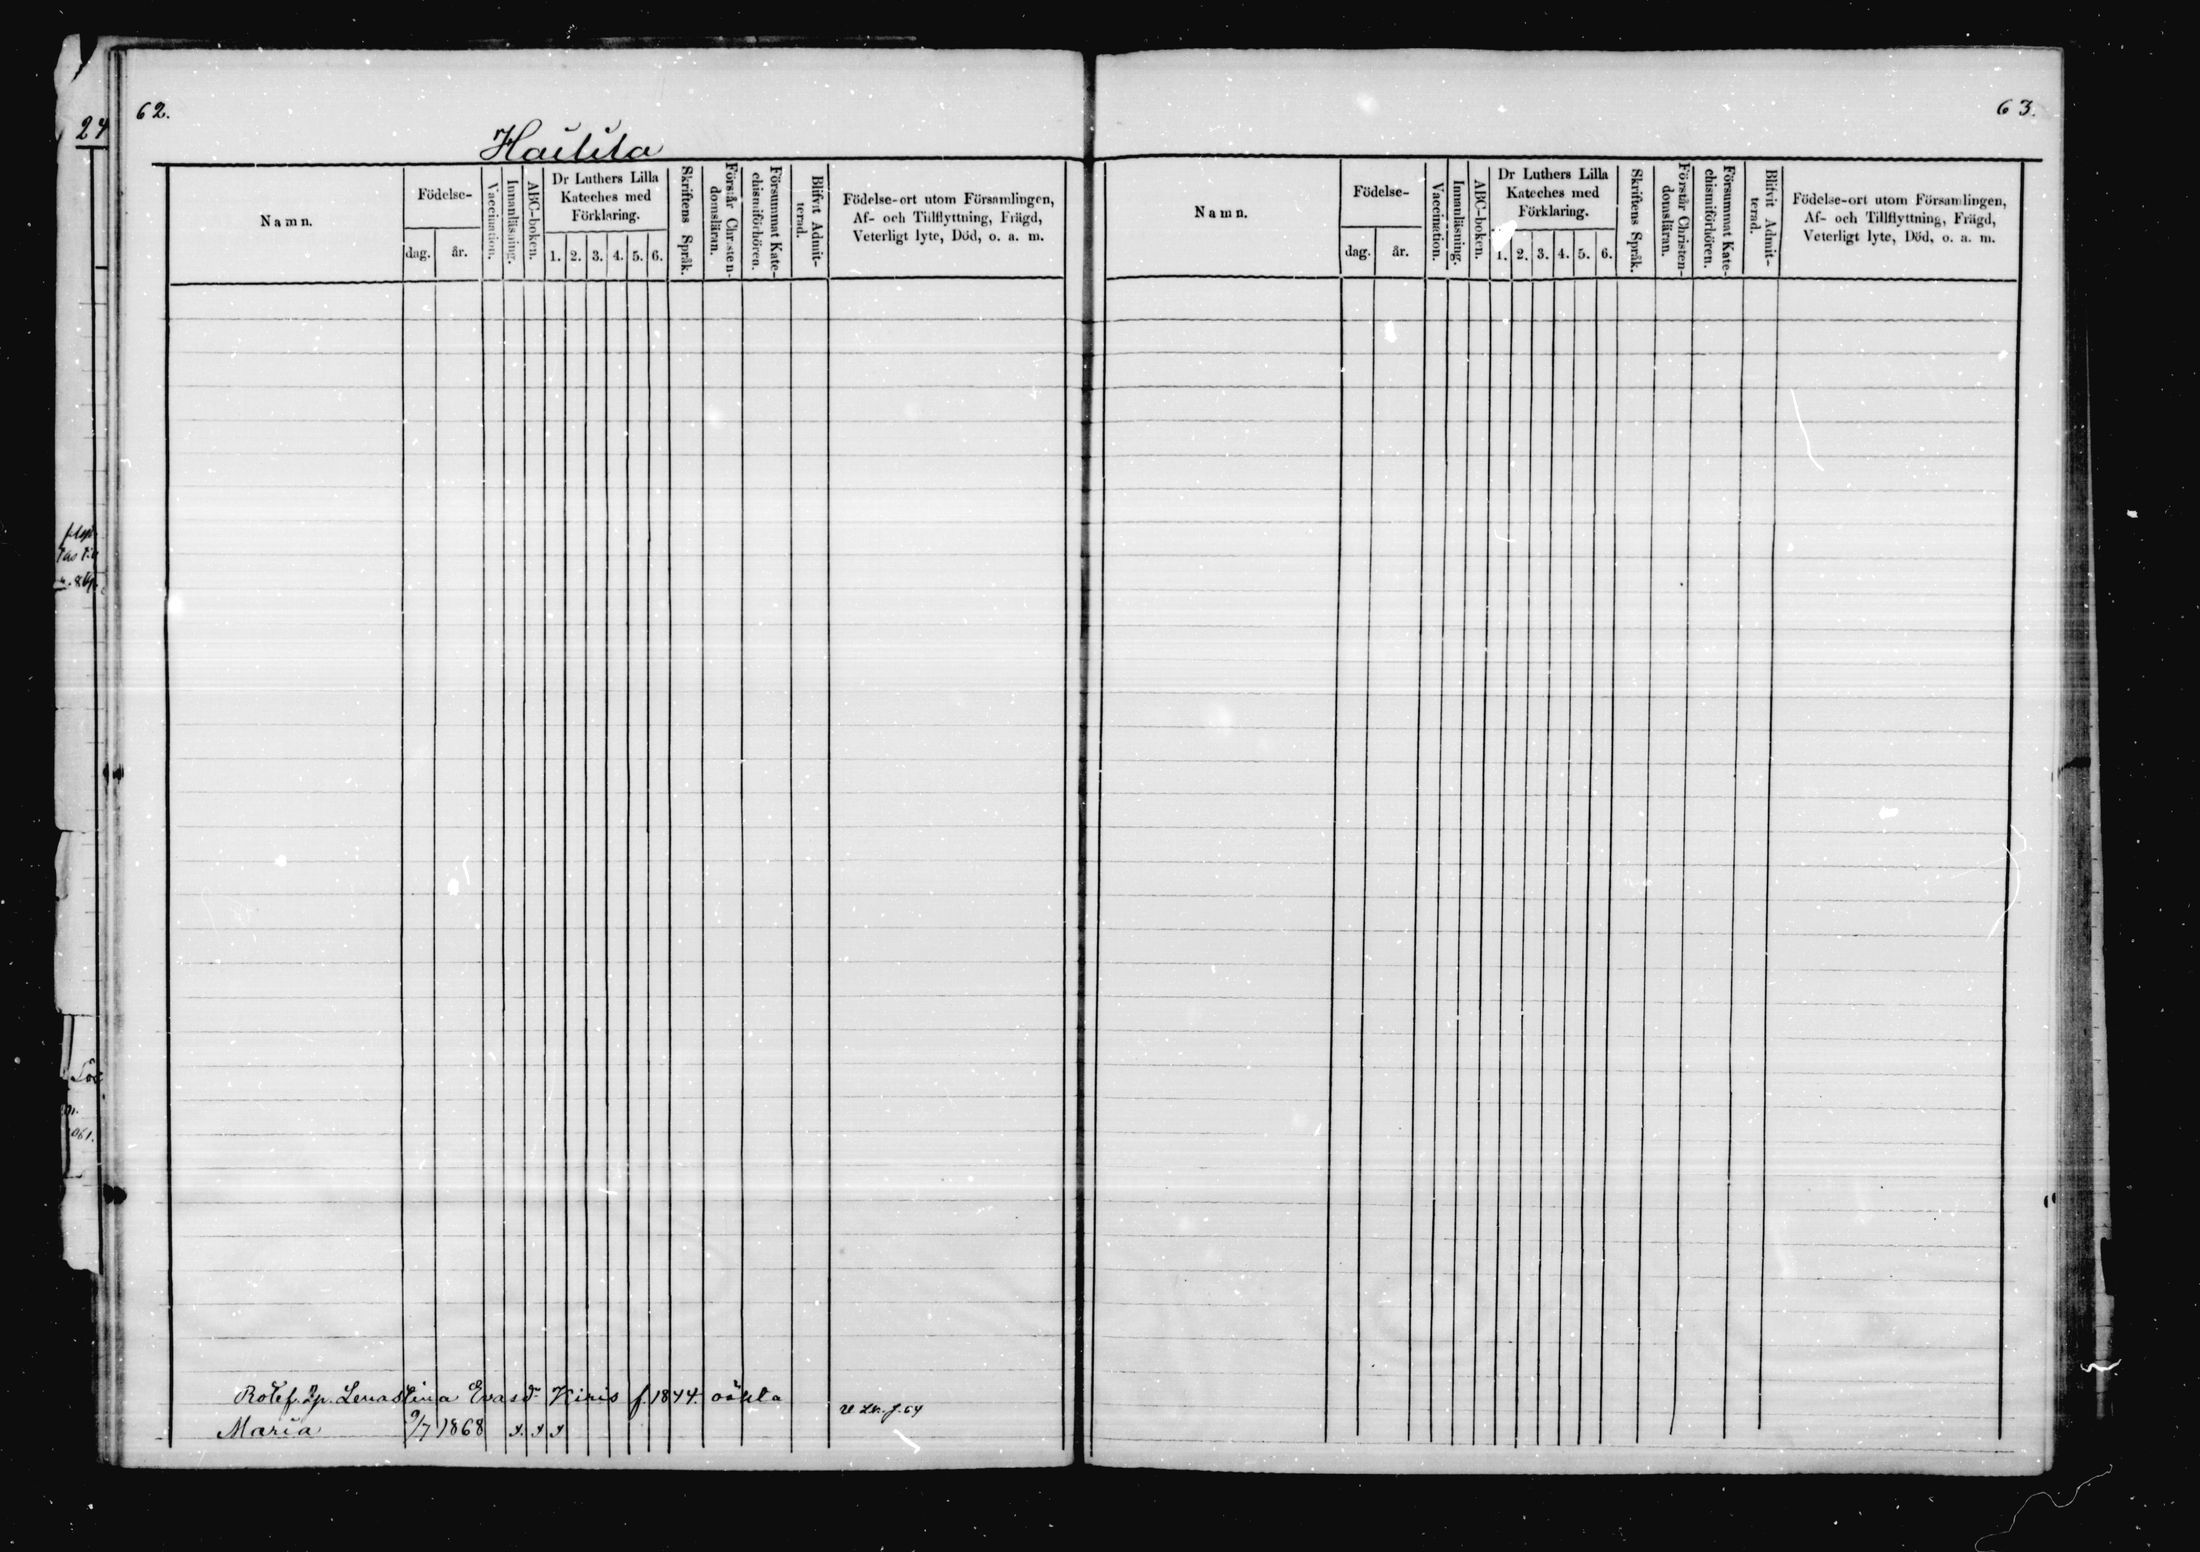 62.
Hailila
Namn.
Födelse-
dag.
år.
Vaccination.
Innanläsning.
ABC-boken.
Dr Luthers Lilla
Kateches med
Förklaring.
1. 2. 3. 4. 5. 6.
Skriftens Språk.
Förstår Christen-
domsläran.
Försummat Kate-
chismiförhören.
Blifvit Admit-
terad.
Födelse-ort utom Församlingen,
Af- och Tillflyttning, Frägd,
Veterligt lyte, Död, o. a. m.
Lenastina Evasd. Kiris f. 1844.
Maria 9/7 1868
63.
Namn.
Födelse-
dag.
år.
Vaccination.
Innanläsning.
ABC-boken.
Dr Luthers Lilla
Kateches med
Förklaring.
1. 2. 3. 4. 5. 6.
Skriftens Språk.
Förstår Christen-
domsläran.
Försummat Kate-
chismiförhören.
Blifvit Admit-
terad.
Födelse-ort utom Församlingen,
Af- och Tillflyttning, Frägd,
Veterligt lyte, Död, o. a. m.